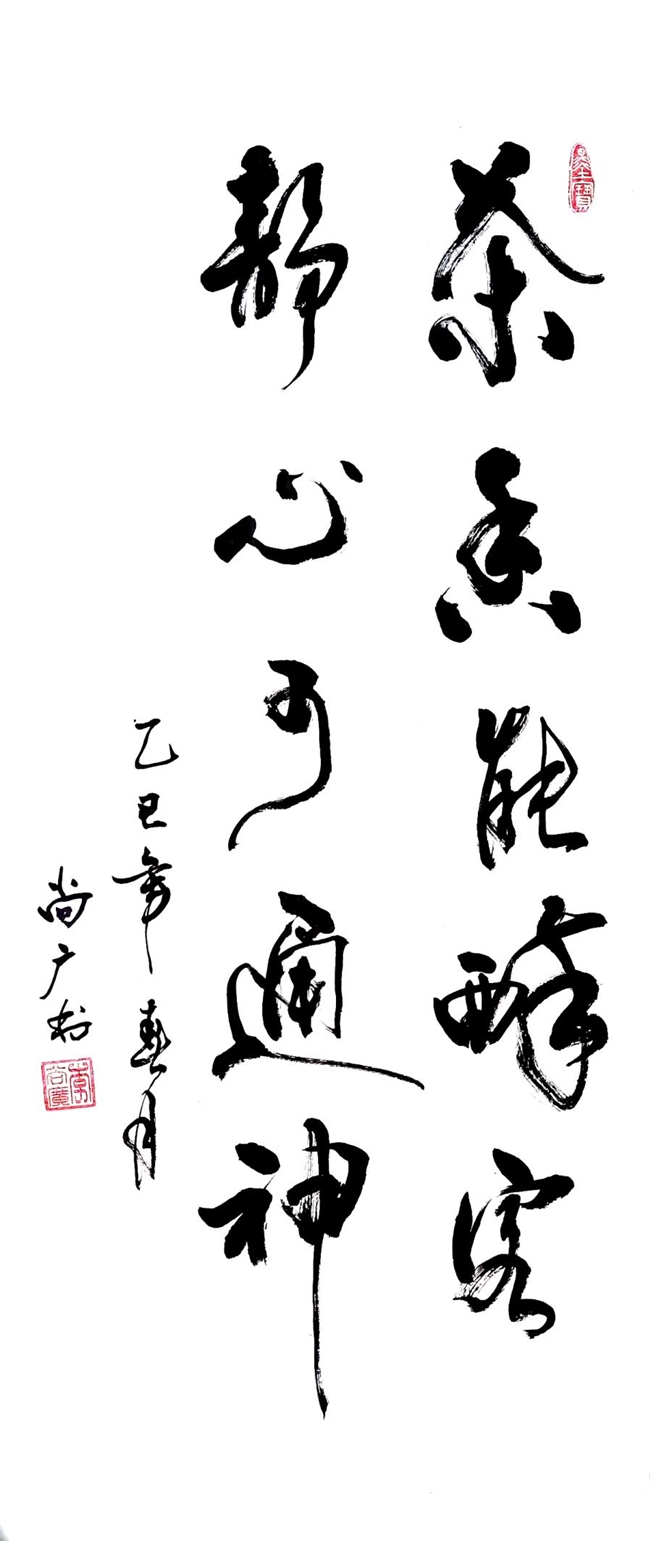 茶香能醉客
静心可通神
乙巳年春月
尚广